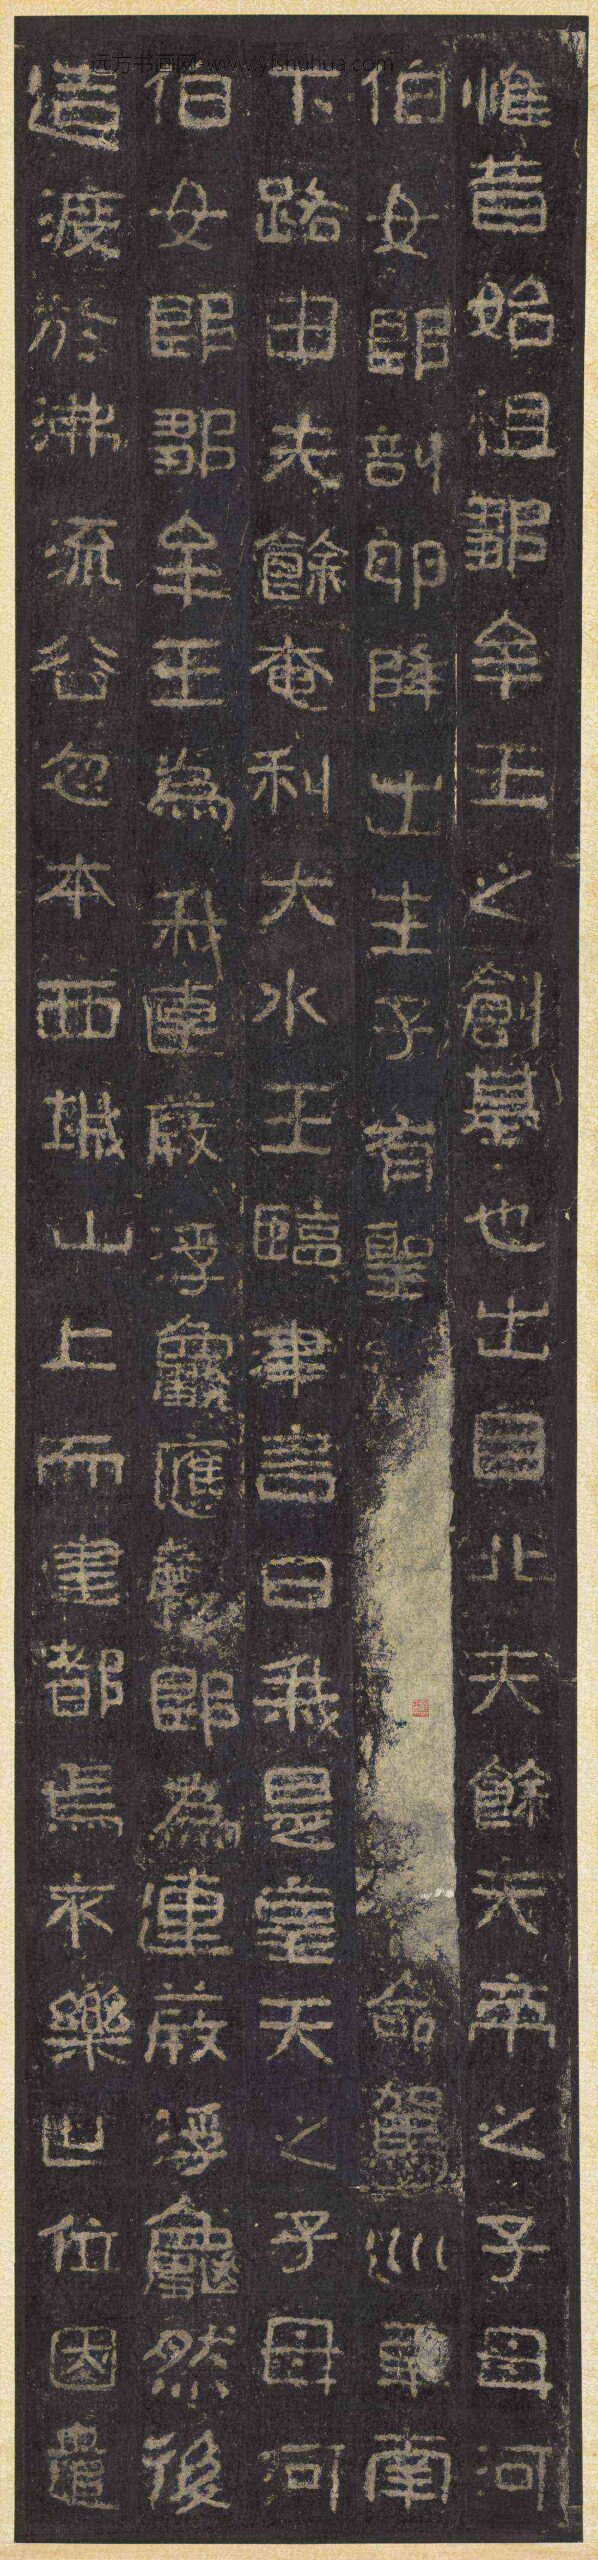 远方书画网 www.yfshuhua.com
惟昔始祖鄒牟王之創基也出自北夫餘天帝之子母河
伯女郎剖卵降世生子有聖命駕巡車南
下路由夫餘奄利大水王臨津言曰我是皇天之子母河
伯女郎鄒牟王為我連葭浮龜應聲即為連葭浮龜然後
造渡於沸流谷忽本西城山上而建都焉不樂世位因遣